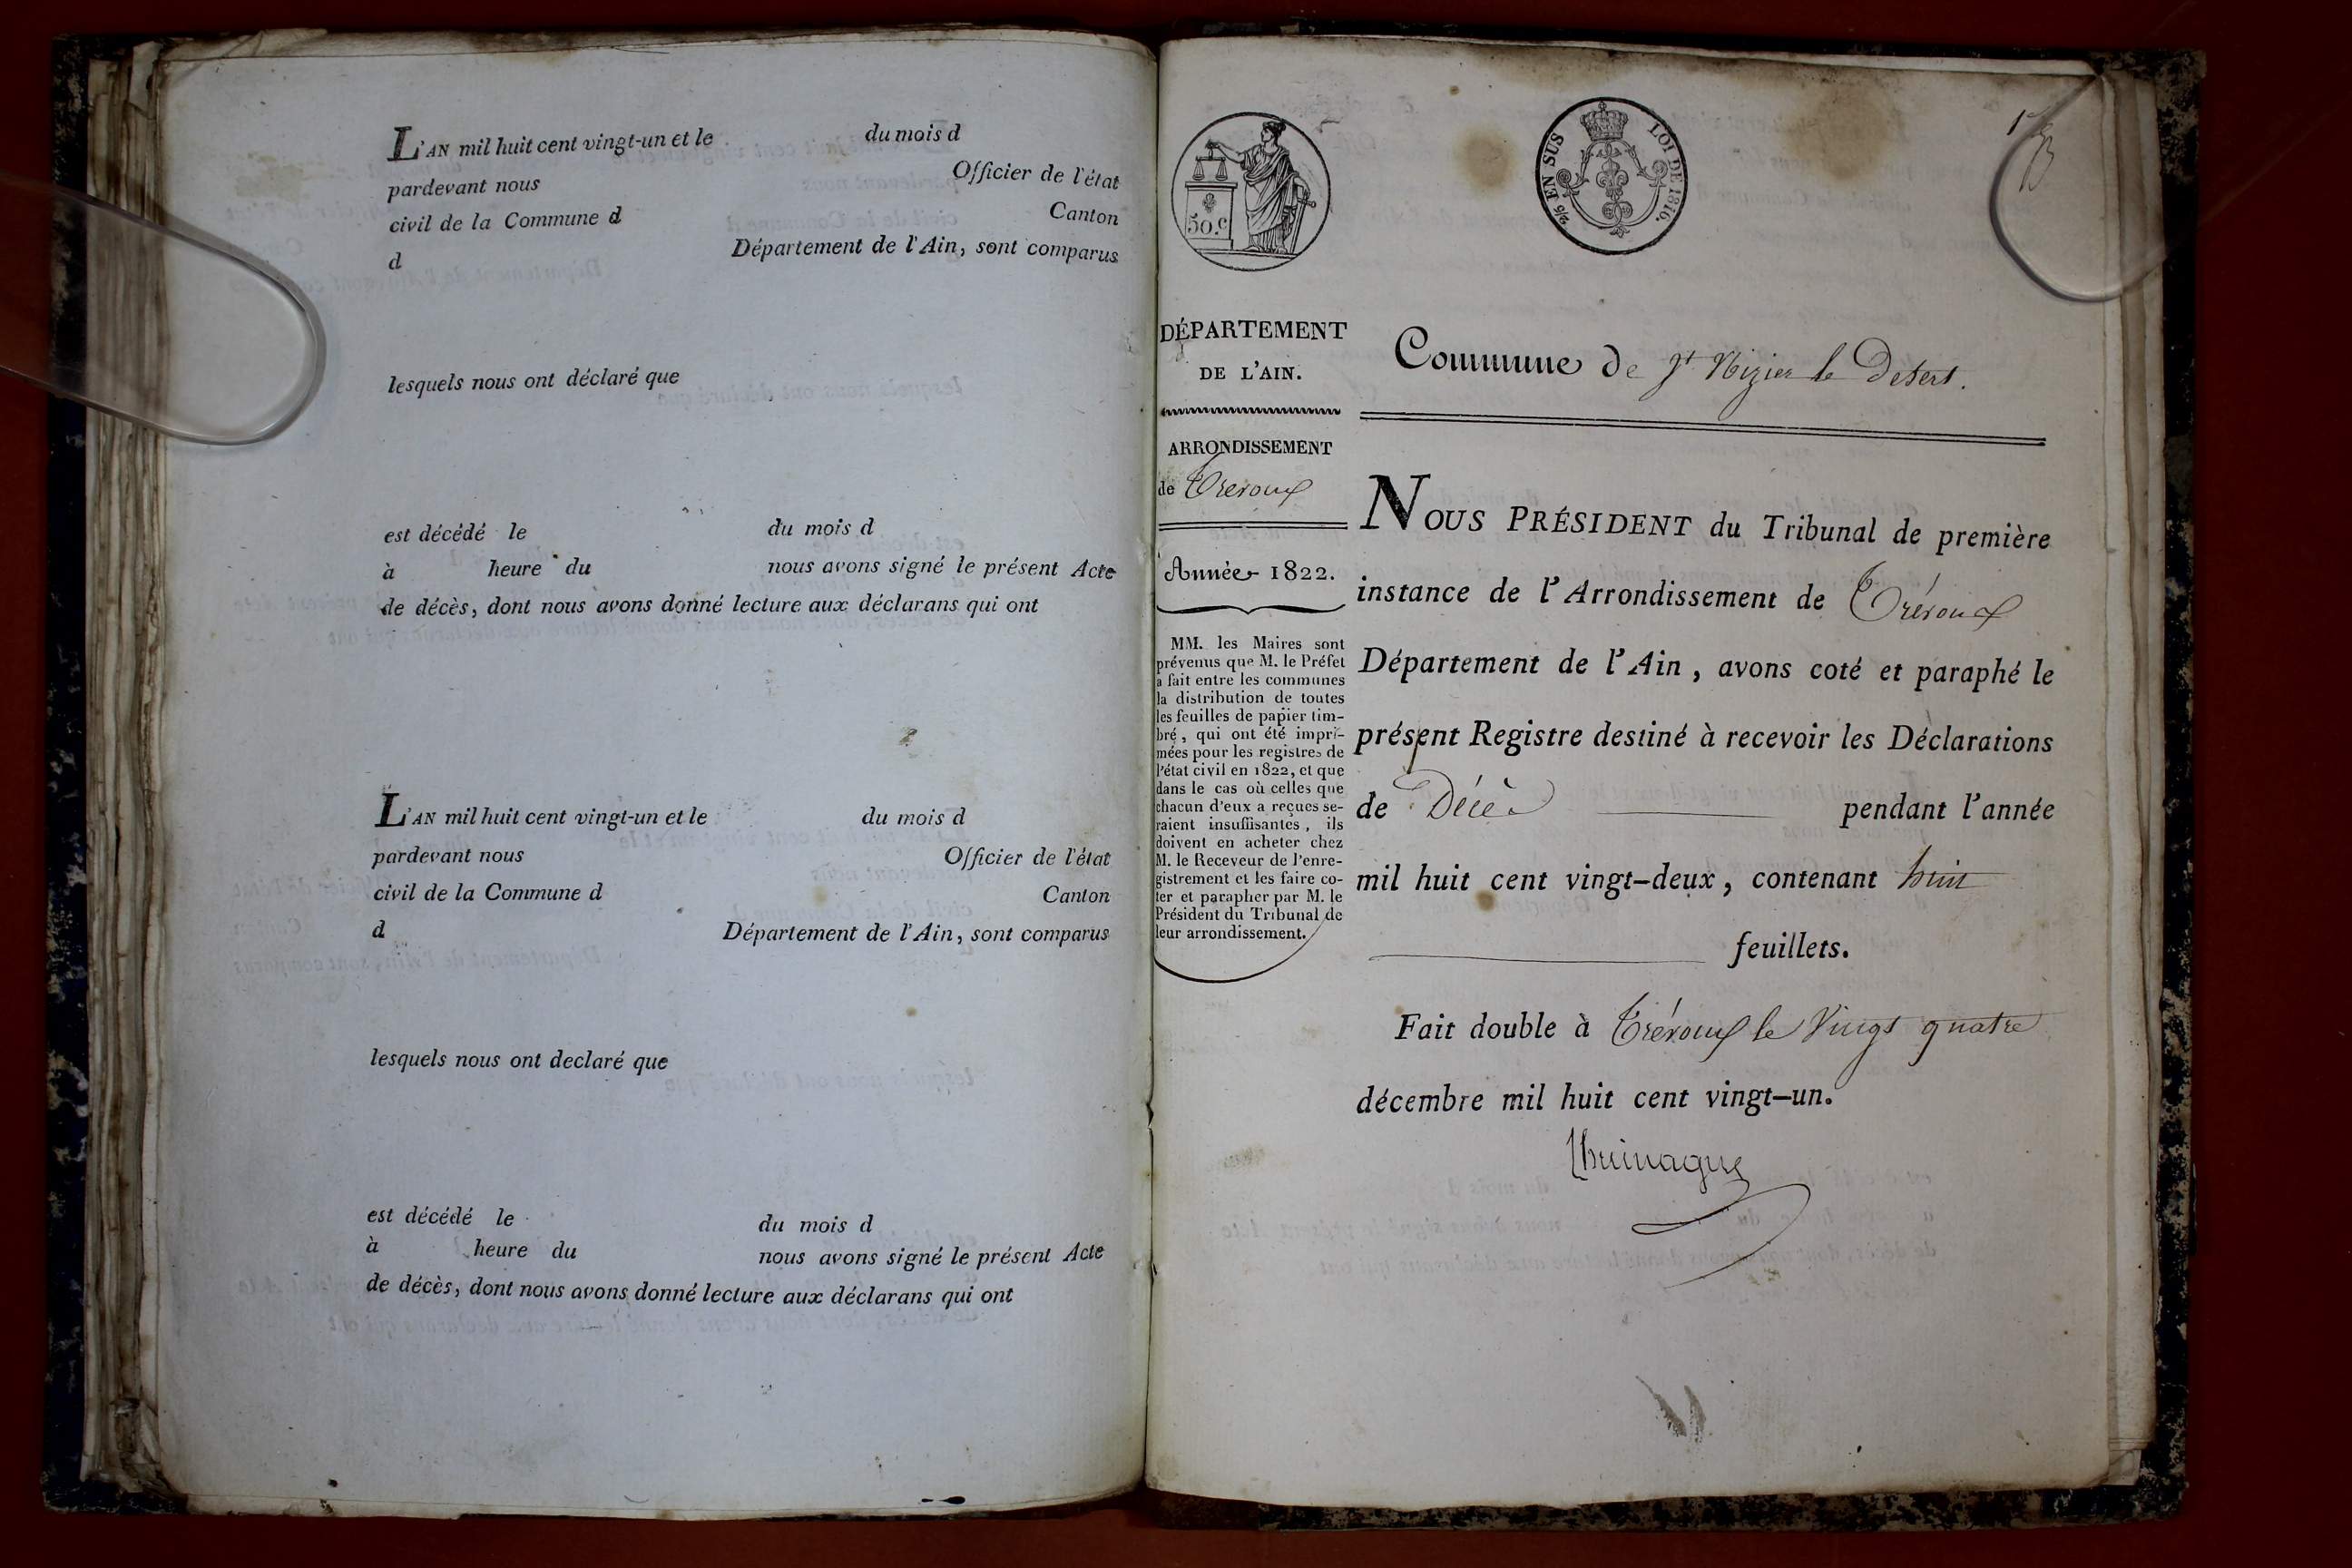 L'AN mil huit cent vingt-un et le du mois d
pardevant nous Officier de l'état
civil de la Commune d Canton
d Département de l'Ain, sont comparus
lesquels nous ont déclaré que
est décédé le du mois d
à heure du nous avons signé le présent Acte
de décès, dont nous avons donné lecture aux déclarans qui ont
L'AN mil huit cent vingt-un et le du mois d
pardevant nous Officier de l'état
civil de la Commune d Canton
d Département de l'Ain, sont comparus
lesquels nous ont declaré que
est décédé le du mois d
à heure du nous avons signé le présent Acte
de décès, dont nous avons donné lecture aux déclarans qui ont
50.c
EN SUS
LOI DE 1816.
1er
DÉPARTEMENT
DE L'AIN.
ARRONDISSEMENT
de Trevoux
Année 1822.
MM. les Maires sont
prévenus que M. le Préfet
a fait entre les communes
la distribution de toutes
les feuilles de papier tim-
bré, qui ont été impri-
mées pour les registres de
l'état civil en 1822, et que
dans le cas où celles que
chacun d'eux a reçues se-
raient insuffisantes, ils
doivent en acheter chez
M. le Receveur de l'enre-
gistrement et les faire co-
ter et parapher par M. le
Président du Tribunal de
leur arrondissement.
Commune de St Nizier le Desert.
NOUS PRÉSIDENT du Tribunal de première
instance de l'Arrondissement de Trévoux
Département de l'Ain, avons coté et paraphé le
présent Registre destiné à recevoir les Déclarations
de Décès pendant l'année
mil huit cent vingt-deux, contenant huit
feuillets.
Fait double à Trévoux le Vingt quatre
décembre mil huit cent vingt-un.